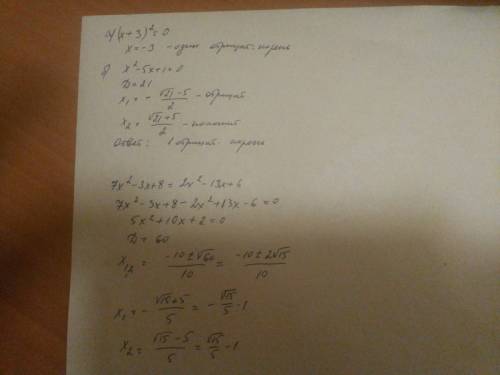 а) (x+3)²=0
x=-3 - один отрицат. корень
б) x²-5x+1=0
D=21
x₁ = - (√21-5)/2 - отрицат
x₂ = (√21+5)/2 - положит
Ответ: 1 отрицат. корень
7x²-3x+8=2x²-13x+6
7x²-3x+8-2x²+13x-6=0
5x²+10x+2=0
D=60
x₁₂ = (-10±√60)/10 = (-10±2√15)/10
x₁ = - (√15+5)/5 = - √15/5 -1
x₂ = (√15-5)/5 = √15/5 -1